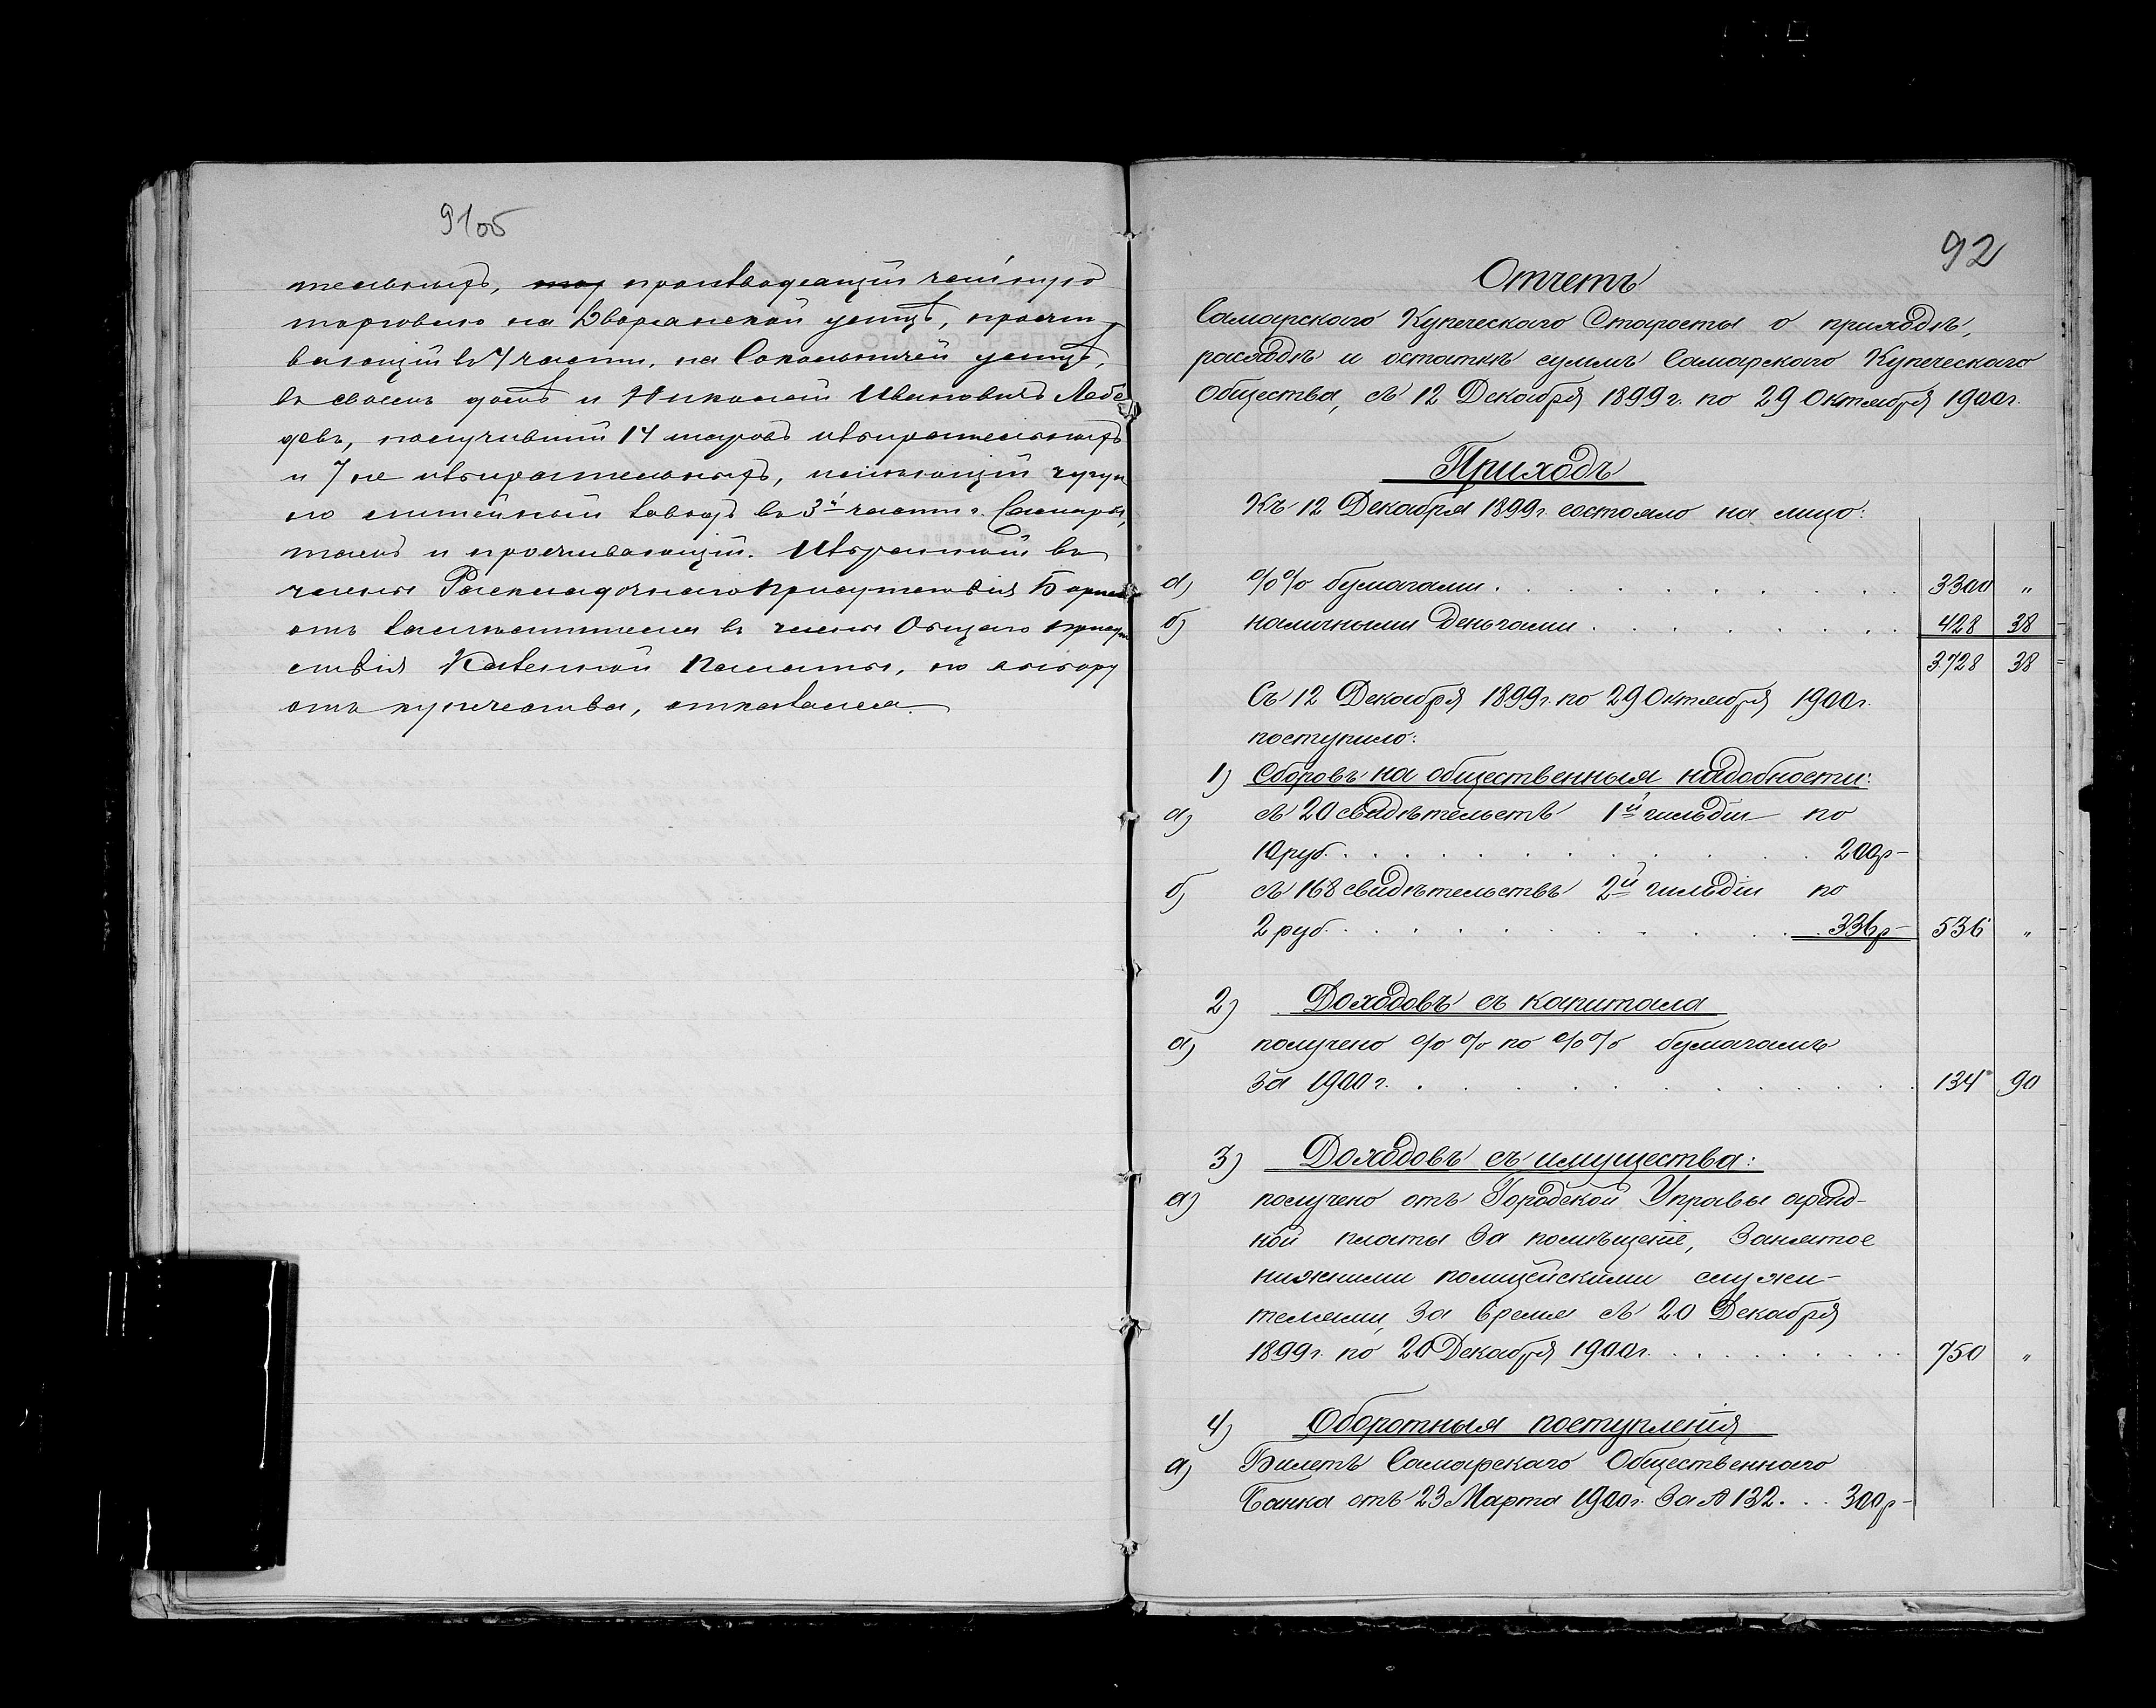 91об
тельныхъ, производящій чайную
торговлю на Дворянской улицѣ, прожи-
вающій въ 4 части, на Сокольничей улицѣ,
въ своемъ домѣ и Николай Ивановичъ Лебе
девъ, получившій 14 шаровъ избирательныхъ
и 7 не избирательныхъ, имѣющій чугун
но литейный заводъ въ 3й части г. Самары,
тамъ и проживающій. Избранный въ
члены Раскладочнаго Присутствія
отъ въ члены Общаго Присут
ствія Казенной Палаты, по выбору
отъ купечества, отказался.
92
Отчетъ
Самарского Купеческаго Старосты о приходѣ,
расходѣ и остаткѣ суммъ Самарскаго Купеческаго
Общества, съ 12 Декабря 1899 г. по 29 Октября 1900 г.
Приходъ
Къ 12 Декабря 1899 г. состояло на лицо:
а) %% бумагами . . . . . . . . . 3300 „
б) наличными деньгами . . . . . . . . 428 38
3728 38
Съ 12 Декабря 1899 г. по 29 Октября 1900 г.
поступило:
1) Сборовъ на общественныя надобности:
а) съ 20 свидѣтельствъ 1й гильдіи по
10 руб. . . . . . . . . . . . 200р –
б) съ 168 свидѣтельствъ 2й гильдіи по
2 руб. . . . . . . . . . . . 336р – 536 „
2) Доходовъ съ капитала
а) получено %% по %% бумагамъ
за 1900 г. . . . . . . . . . . . 134 90
3) Доходовъ съ имущества:
а) получено отъ Городской Управы аренд-
ной платы за помѣщеніе, занятое
нижними полицейскими служи-
телями, за время съ 20 Декабря
1899 г. по 20 Декабря 1900 г. . . . . . . . . 750 „
4) Оборотныя поступленія
а) Билетъ Самарскаго Общественнаго
Банка отъ 23 Марта 1900 г. за № 132 . . . 300р –